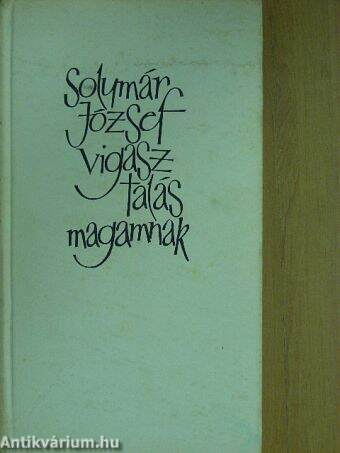 Solymár
József
vigasz
talás
magamnak
Antikvárium.hu